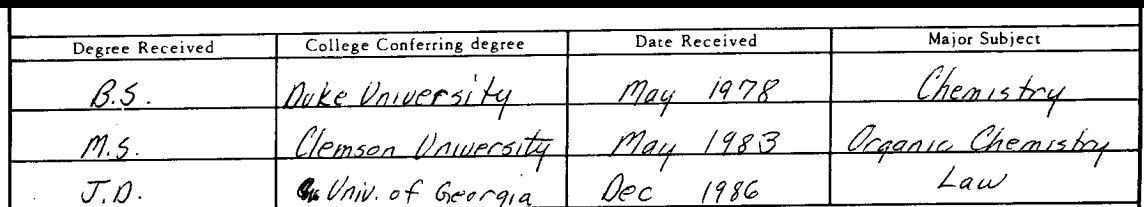 Degree Received College Conferring degree Date Received Major Subject
B.S. Duke University May 1978 Chemistry
M.S. Clemson University May 1983 Organic Chemistry
J.D. Univ. of Georgia Dec 1986 Law